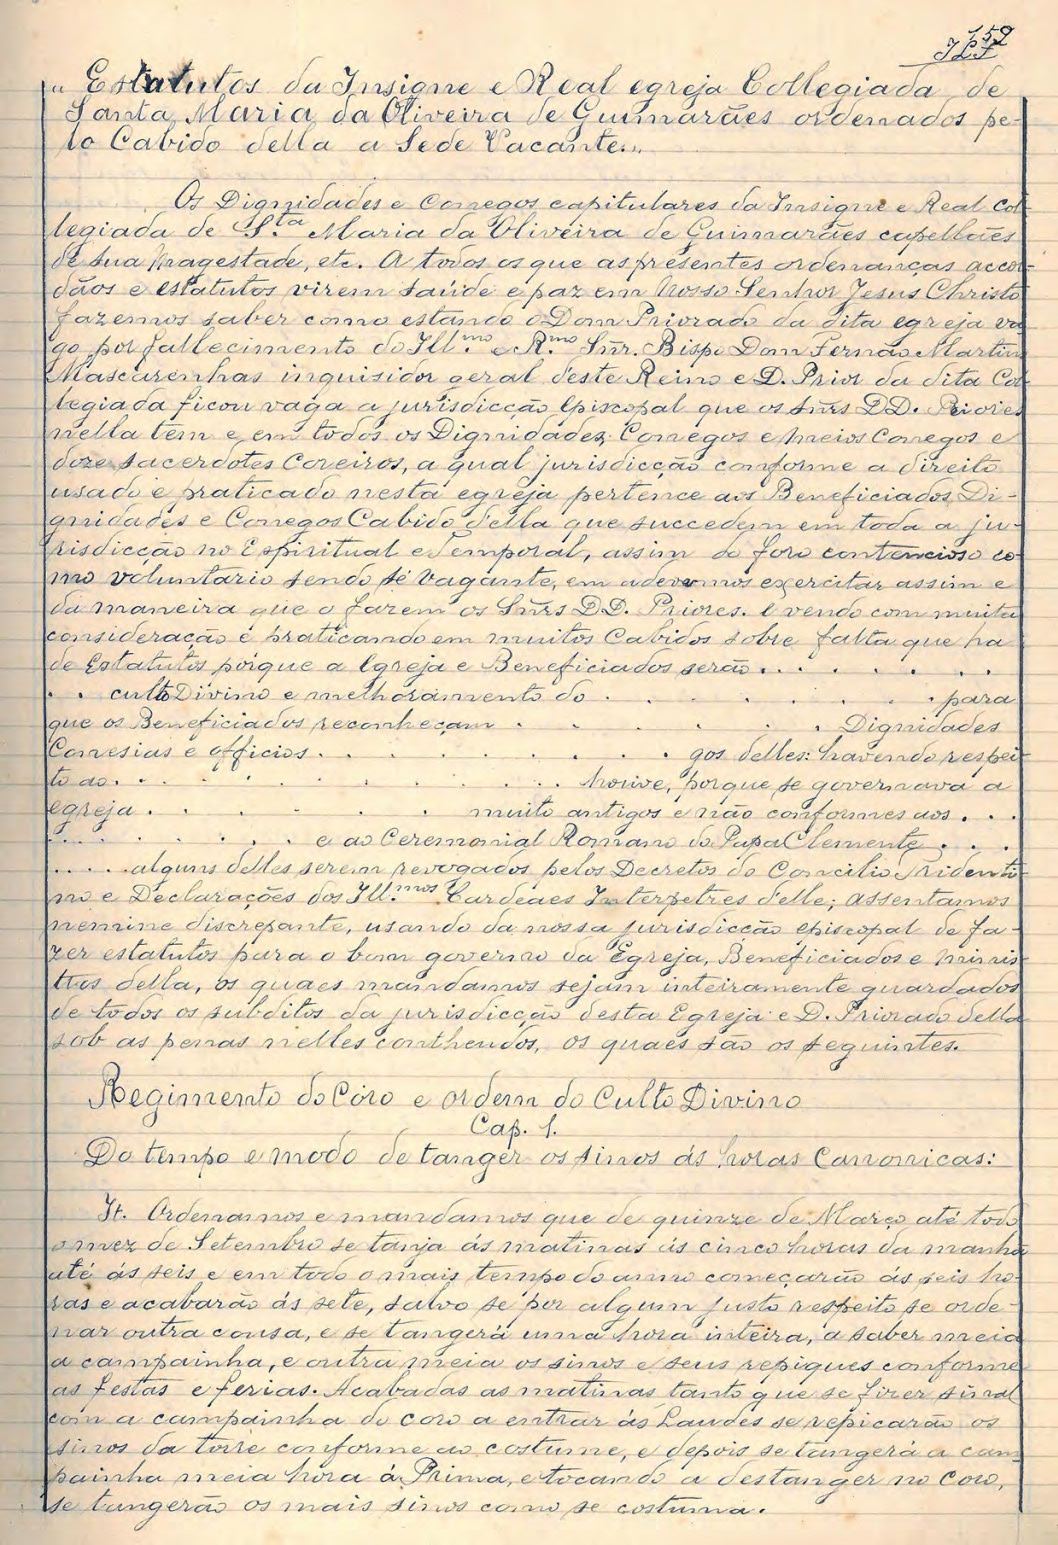 152
„ Estatutos da Insigne e Real egreja Collegiada de
Santa Maria da Oliveira de Guimarães ordenados pe-
lo Cabido della a Sede Vacante..„
Os Dignidades e Conegos capitulares da Insigne e Real Col
legiada de S.ta Maria da Oliveira de Guimarães capellães
de Sua Magestade, etc. A todos os que as presentes ordenanças accor-
dãos e estatutos virem saúde e paz em Nosso Senhor Jesus Christo
fazemos saber como estando o Dom Priorado da dita egreja va
go por fallecimento do Ill.mo e R.mo Snr. Bispo Dom Fernão Martins
Mascarenhas inquisidor geral deste Reino e D. Prior da dita Col
legiada ficou vaga a jurisdicção Episcopal que os Snrs DD. Priores
nella tem e em todos os Dignidades Conegos e meios Conegos e
doze sacerdotes Coreiros, a qual jurisdicção conforme a direito
usado e praticado nesta egreja pertence aos Beneficiados, Di-
gnidades e Conegos Cabido della que succedem em toda a ju-
risdicção no Espiritual e Temporal, assim do foro contencioso co-
mo voluntario sendo sé vagante, em a devemos exercitar assim e
da maneira que o fazem os Snrs DD. Priores. E vendo com muita
consideração e praticando em muitos Cabidos sobre falta que ha
de Estatutos porque a Egreja e Beneficiados serão . . . . . . .
. . culto Divino e melhoramento do . . . . . . para
que os Beneficiados reconheçam . . . . . Dignidades
Conesias e officios . . . . . . . . gos delles: havendo respei-
to ao . . . . . . . . . . houve, porque se governava a
egreja . . . . . . . muito antigos e não conformes aos . . .
. . . . . . . e ao Ceremonial Romano do Papa Clemente . . .
. . . . . alguns delles serem revogados pelos Decretos do Concilio Tridenti-
no e Declarações dos Ill.mos Cardeaes Interpetres delle; assentamos
nemine discrepante, usando da nossa jurisdicção episcopal de fa-
zer estatutos para o bom governo da Egreja, Beneficiados e minis-
tros della, os quaes mandamos sejam inteiramente guardados
de todos os subditos da jurisdicção desta Egreja e D. Priorado della
sob as penas nelles contheudos, os quaes são os seguintes.
Regimento do Côro e ordem do Culto Divino
Cap. 1.
Do tempo e modo de tanger os sinos ás horas Canonicas:
It. Ordenamos e mandamos que de quinze de Março até todo
o mez de Setembro se tanja ás matinas ás cinco horas da manhã
até ás seis e em todo o mais tempo do anno começarão ás seis ho-
ras e acabarão ás sete, salvo se por algum justo respeito se orde-
nar outra cousa, e se tangerá uma hora inteira, a saber meia
a campainha, e outra meia os sinos e seus repiques conforme
as festas e ferias. Acabadas as matinas tanto que se fizer sinal
com a campainha do coro a entrar ás Laudes se repicarão os
sinos da torre conforme ao costume, e depois se tangerá a cam-
painha meia hora á Prima, e tocando a destanger no Coro,
se tangerão os mais sinos como se costuma.